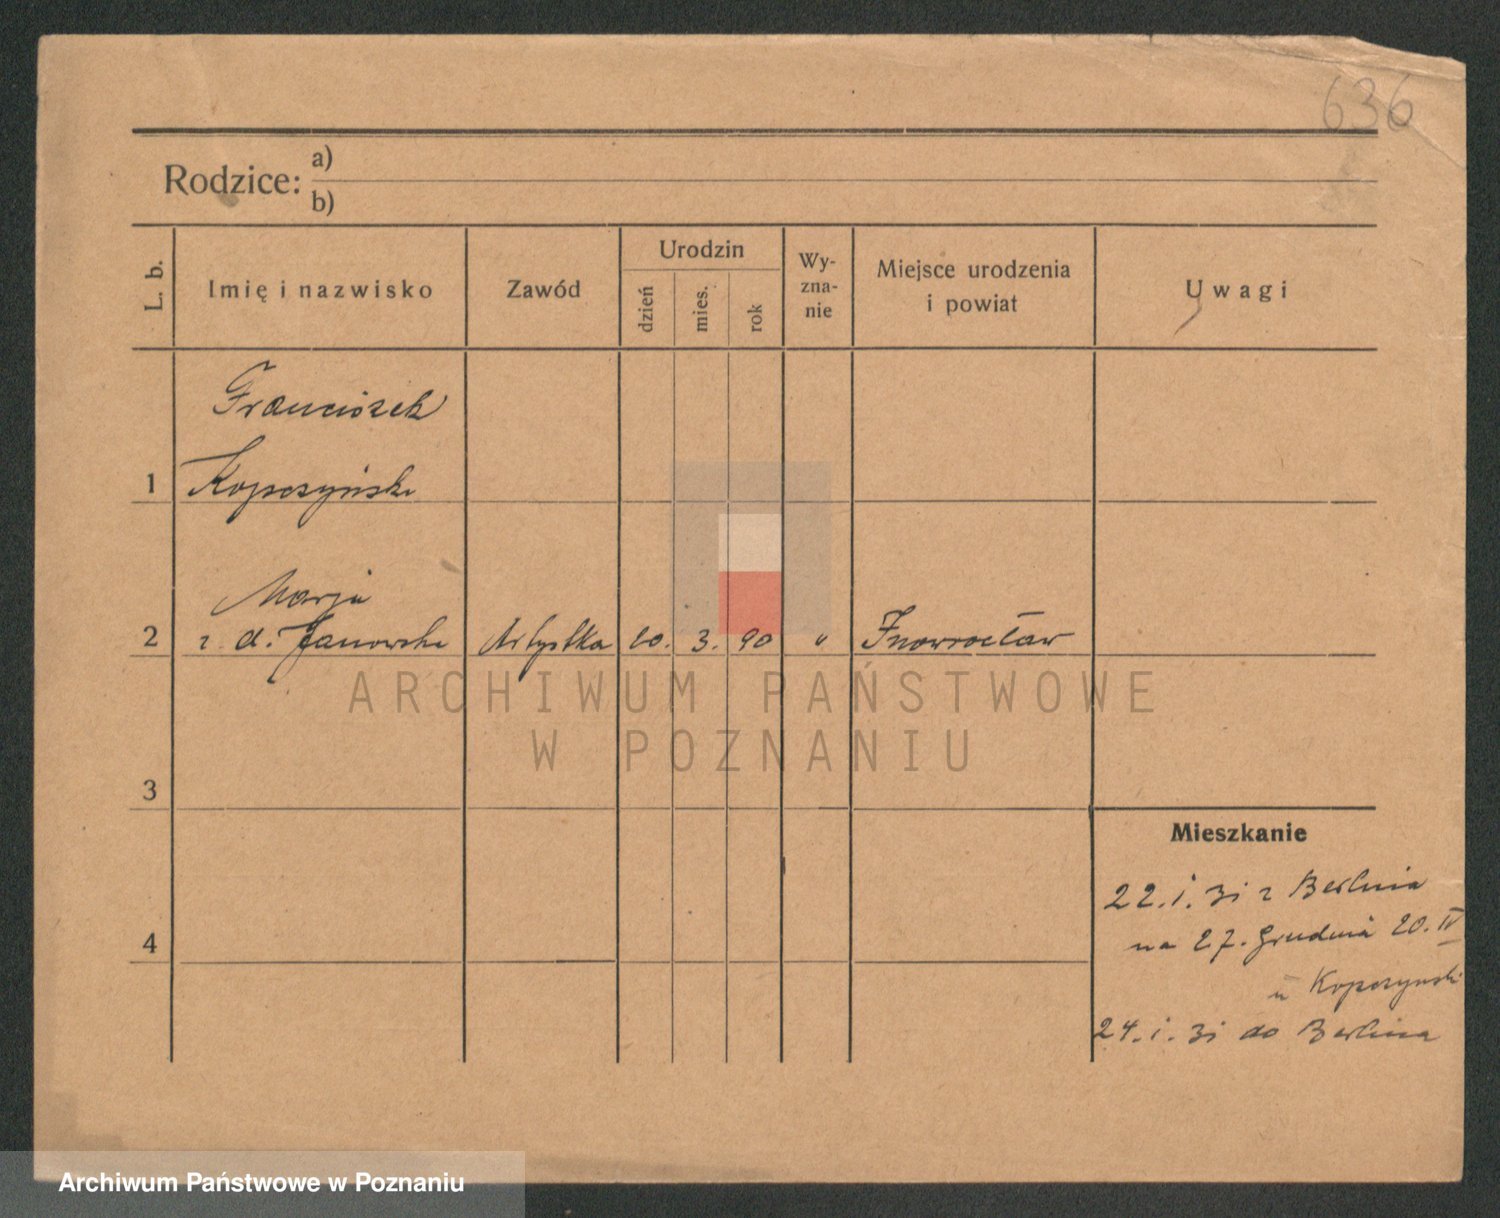 636
Rodzice: a)
b)
L. b.
Imię i nazwisko
Zawód
Urodzin
dzień
mies.
rok
Wy-
zna-
nie
Miejsce urodzenia
i powiat
Uwagi
Franciszek
1 Kopczyński
Marja
2 z d. Janowska Artystka 20. 3. 90 " Inowrocław
3
4
Mieszkanie
22.i.3i z Berlina
na 27. Grudnia 20. IV
u Kopczynski
24.i.3i do Berlina
ARCHIWUM PAŃSTWOWE
W POZNANIU
Archiwum Państwowe w Poznaniu